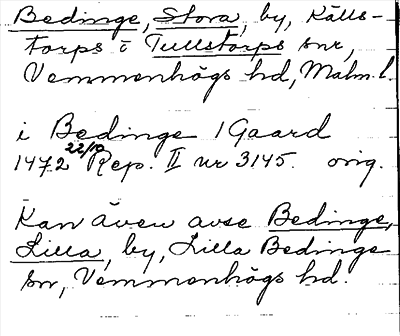 Bedinge, Stora, by, Källs-
torps i Tullstorps snr,
Vemmenhögs hd, Malm. l.
i Bedinge 1 Gaard
1472 22/10 Rep. II nr 3145. orig.
Kan även avse Bedinge,
Lilla, by, Lilla Bedinge
sn, Vemmenhögs hd.